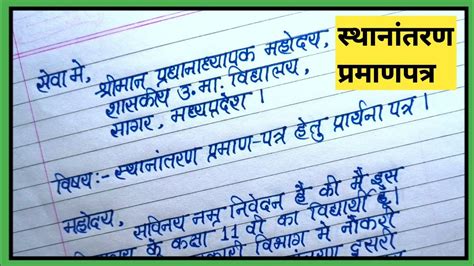 स्थानांतरण
प्रमाणपत्र
सेवा में,
श्रीमान प्रधानाध्यापक महोदय,
शासकीय उ. मा. विद्यालय,
सागर, मध्यप्रदेश।
विषय:- स्थानांतरण प्रमाण-पत्र हेतु प्रार्थना पत्र।
महोदय,
सविनय नम्र निवेदन है की मैं इस
के कक्षा 11 वी का विद्यार्थी हूँ।
विभाग में नौकरी
दूसरी